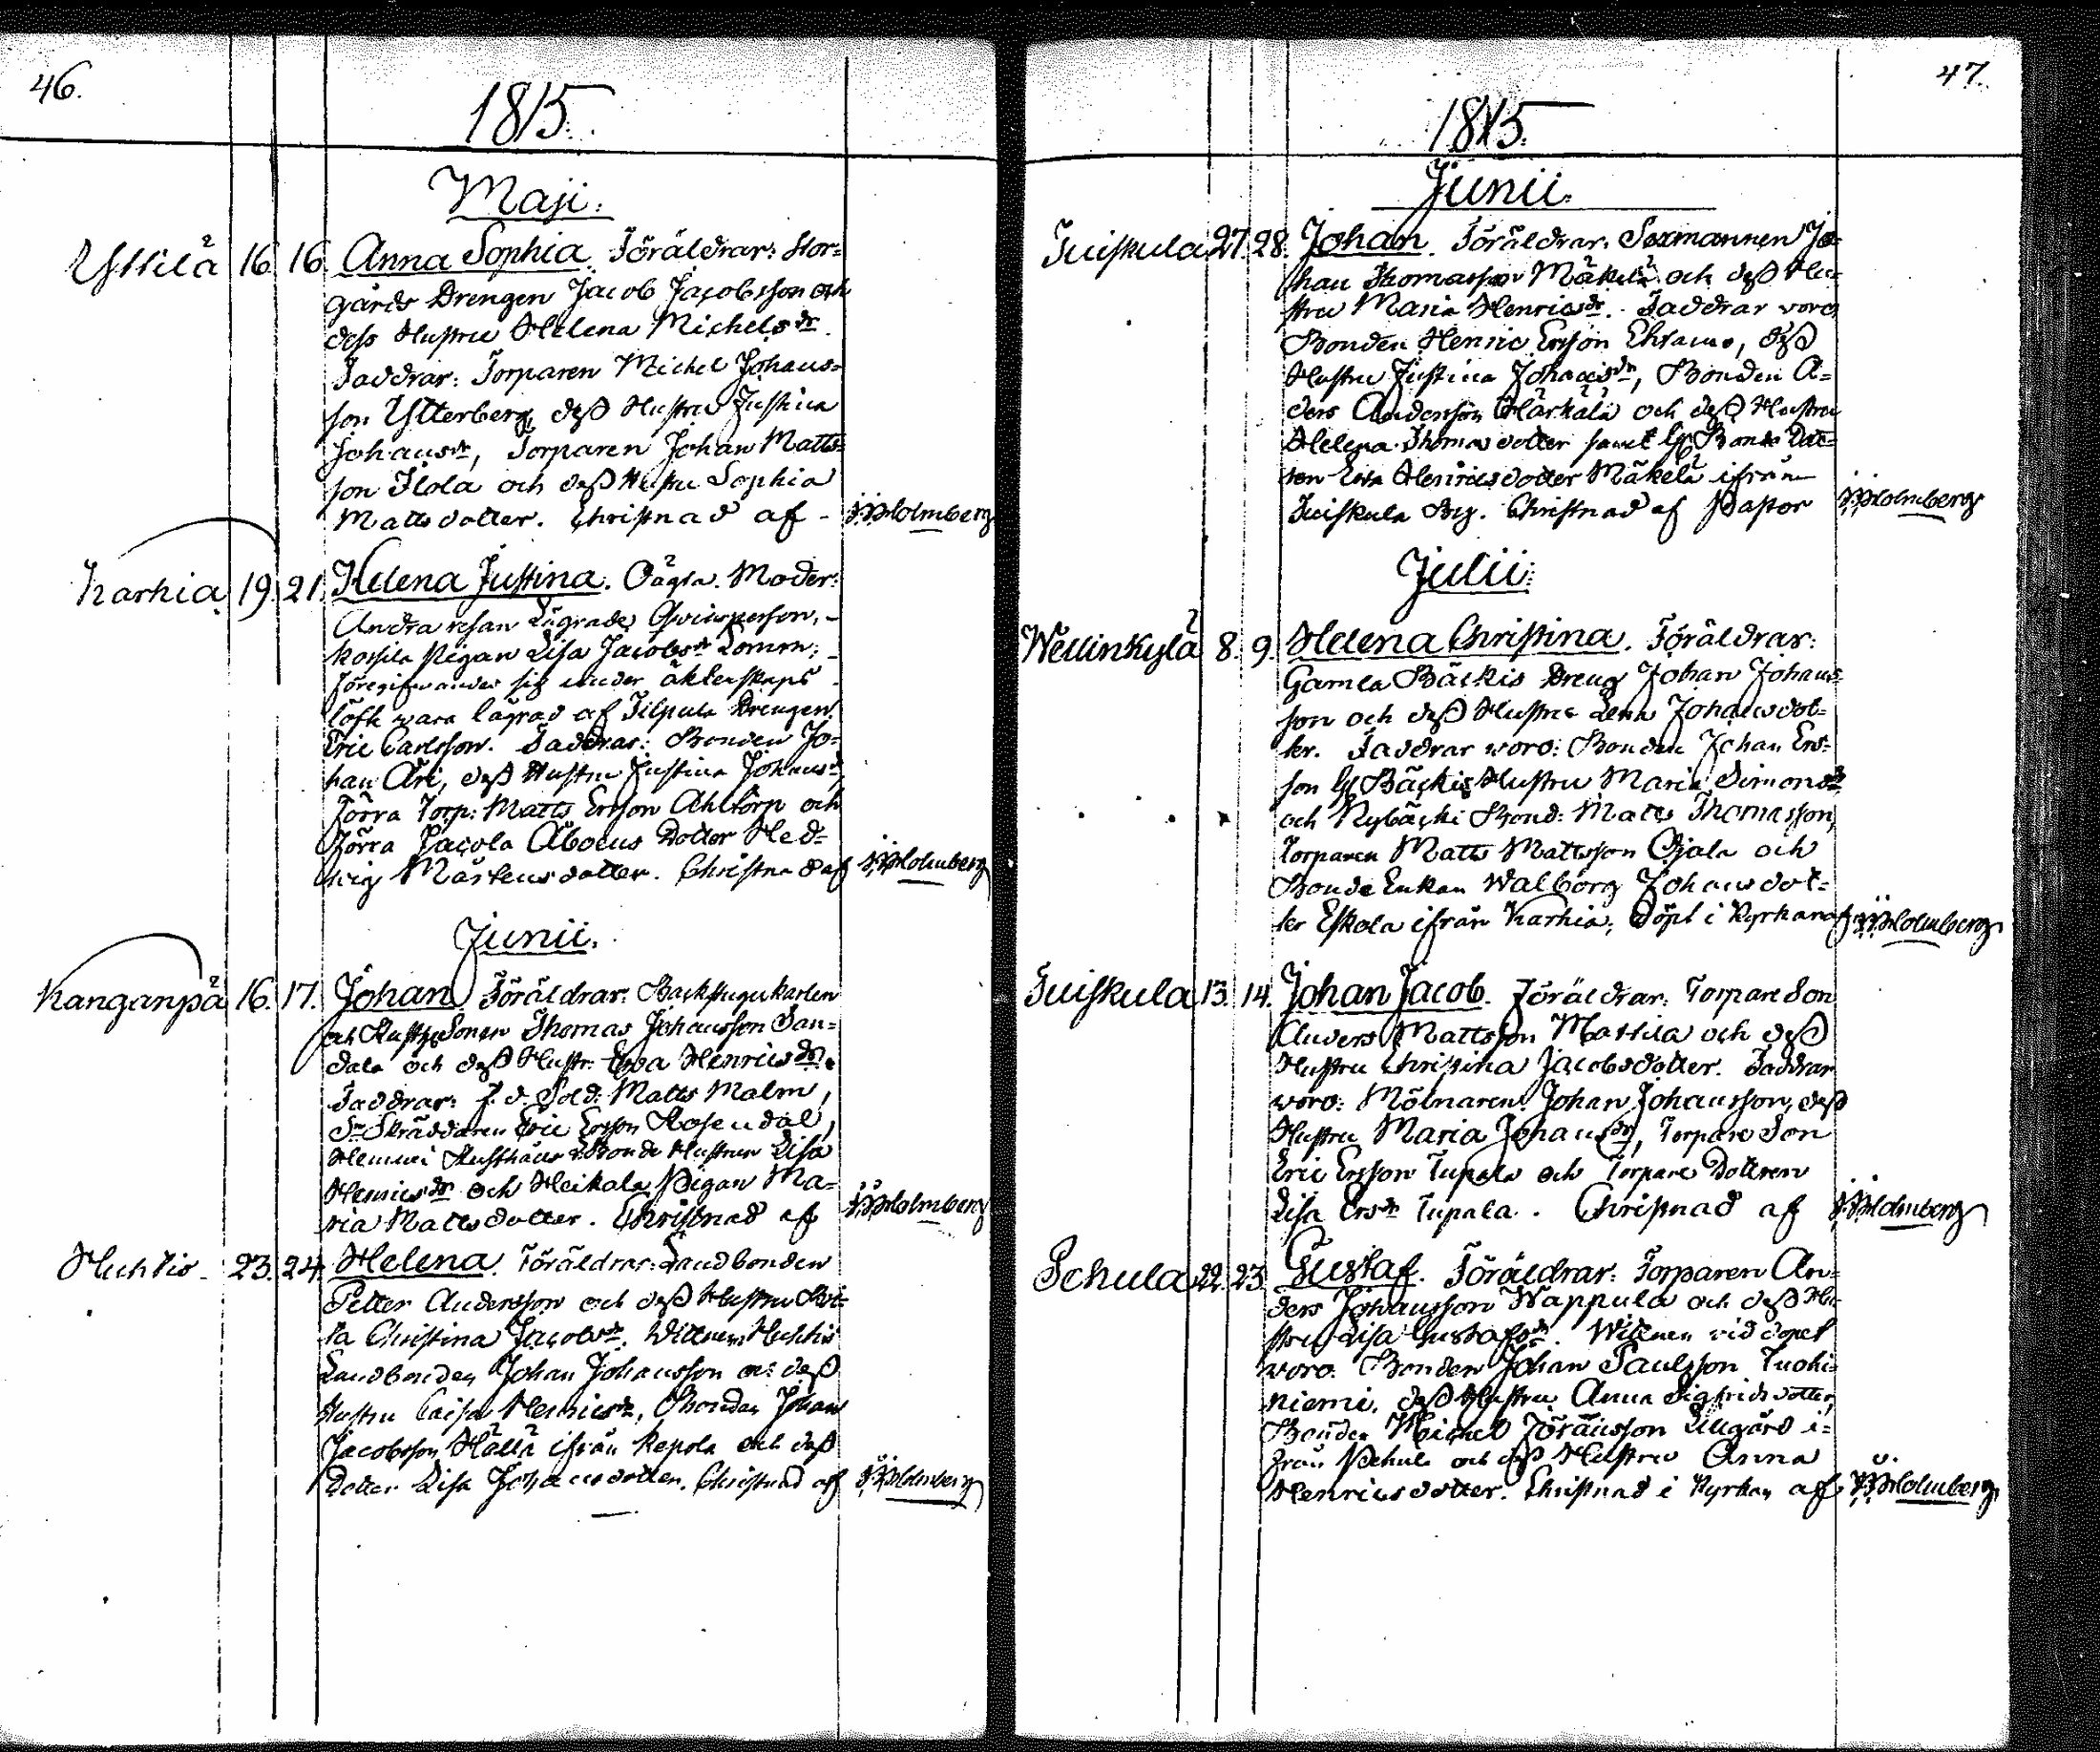 46.
1815.
Maji.
Yttilä 16 16 Anna Sophia. Föräldrar: Stor-
gårds Drengen Jacob Jacobsson och
dess Hustru Helena Michelsdr.
Faddrar: Torparen Michel Johans-
son Ytterberg, dess Hustru Justina
Johansdr, Torparen Johan Matts-
son Ilola och dess Hustru Sophia
Matts dotter. Christnad af - Holmberg
Karhia 19. 21. Helena Justina. Oägta. Moder:
Andra resan Lägrade Qwinsperson,
Kossila Pigan Lisa Jacobsdr
föregifwandes sig under äktenskaps
löfte wara lägrad af Filpula Drengen
Eric Carlsson. Faddrar: Bonden Jo-
han Ari, dess Hustru Justina Johansdr,
Förra Torp: Matts Ersson Ahltorp och
Förra Jacola Åboens Dotter Hed-
wig Mårtensdotter. Christnad af Holmberg
Junii.
Kanganpä 16. 17. Johan. Föräldrar: Backstugukarlen
och Sonen Thomas Johansson San-
dala och dess Hustr. Ewa Henricsdr.
Faddrar: f. d. Sold: Matts Malm,
Sn Skräddaren Eric Ersson Rosendal,
Rusthålls Bonde Hustrun Lisa
Henricsdr och Heikala Pigan Ma-
ria Mattsdotter. Christnad af Holmberg
Huhtio 23. 24. Helena. Föräldrar: Landbonden
Petter Andersson och dess Hustru Bri-
ta Christina Jacobsdr. Wittnen: Huhtis
Landbonden Johan Johansson o: dess
Hustru Caisa Henricsdr, Bonden Johan
Jacobsson Hällä ifrån Kepola och dess
Dotter Lisa Johansdotter. Christnad af Holmberg
47.
1815.
Junii.
Tuiskula 27. 28. Johan. Föräldrar: Sexmannen Jo-
han Thomasson Mäkelä och dess Hu-
stru Maria Henricsdr. Faddrar voro
Bonden Henric Ersson dess
Hustru Justina Johansdr, Bonden A-
ders Andersson Härkälä och dess Hustru
Helena Thomasdotter samt Bonde Dot-
ren Ewa Henricsdotter Mäkelä ifrån
Tuiskula By. Christnad af Pastor Holmberg
Julii:
Wellinkylä 8. 9. Helena Christina. Föräldrar:
Gamla Bäckis Dreng Johan Johans-
son och dess Hustru Lena Johansdot-
ter. Faddrar woro: Bonden Johan Ers-
son Gl Bäckis Hustru Maria Simonsdr
och Nybäcki Bond: Matts Thomasson,
Torparen Matts Mattsson Ojala och
Bonde Enkan Walborg Johansdot-
ter Eskola ifrån Karhia, Döpt i Kyrkan af Holmberg
Tuiskula 13. 14. Johan Jacob. Föräldrar: Torpare Son
Anders Mattsson Mattila och dess
Hustru Christina Jacobsdotter. Faddrar
woro: Mölnaren Johan Johansson, dess
Hustru Maria Johansdr, Torpare Son
Eric Ersson Tupala och Torpare Dottren
Lisa Ersdr Tupala. Christnad af Holmberg
Pehula 22. 23. Gustaf. Föräldrar: Torparen An-
ders Johansson Wappula och dess Hu-
stru Lisa Gustafsdr. Wittnen vid dopet
woro: Bonden Johan Paulsson Tuohi-
niemi, dess Hustru Anna Sigfridsdotter,
Bonden Michel Göransson Lillgård i-
från Pehula och dess Hustru Anna
Henricsdotter. Christnad i Kyrkan af Holmberg